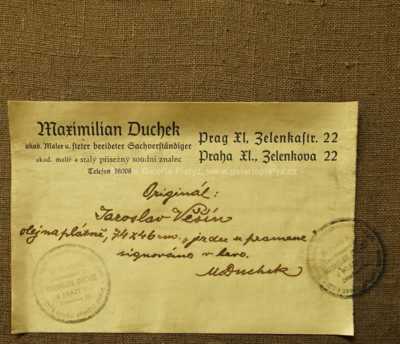 Maximilian Duchek
akad. Maler u. steter beeideter Sachverständiger
akad. malíř a stálý přísežný soudní znalec
Telefon
Prag XI, Zelenkastr. 22
Praha XI., Zelenkova 22
Galerie Platýz, www.galerieplatyz.cz
Originál:
Jaroslav Věšín
olej na plátně, 74x46 cm. „jezdec u pramene"
signováno v levo.
M Duchek